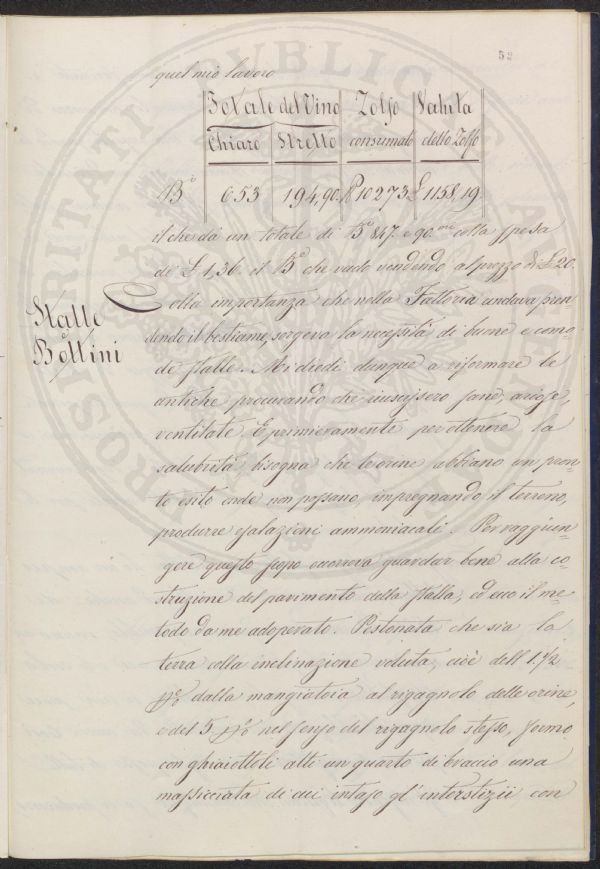 52
quel mio lavoro
Totale del Vino Zolfo Valuta
Chiaro Stretto consumato dello Zolfo
B.e 653 194,90. 10273 £ 1158,19.
il che dà un totale di B.e 847. e 90.mi colla spesa
di £ 1,36. il B.e che vado vendendo al prezzo di £ 20.
Stalle
Bottini
Colla importanza che nella Fattoria andava pren
dendo il bestiame, sorgeva la necessità di buone e como
de stalle. Mi diedi dunque a riformare le
antiche procurando che riuscissero sane, ariose,
ventilate. E primieramente per ottenere la
salubrità bisogna che le orine abbiano un pron
to esito onde non possano, impregnando il terreno,
produrre esalazioni ammoniacali. Per raggiun
gere questo scopo occorreva guardar bene alla co
struzione del pavimento della stalla, ed ecco il me
todo da me adoperato. Pestonata che sia la
terra colla inclinazione voluta, cioè dell' 1. 1/2
p% dalla mangiatoia al rigagnolo delle orine,
e del 5. p% nel senso del rigagnolo stesso, formo
con ghiaiottoli alti un quarto di braccio una
massicciata di cui intaso gl' interstizii con